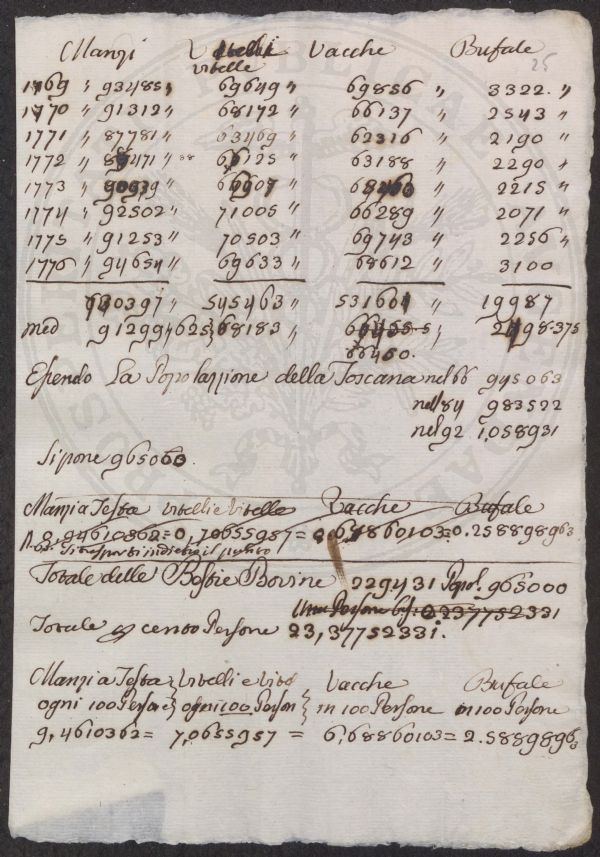 Manzi Vitelli Vacche Bufale
vitelle 25
1769 " 93485 " 69649 " 69856 " 3322 "
1770 " 91312 " 68172 " 66137 " 2543 "
1771 " 87781 " 63469 " 62316 " 2190 "
1772 " 89471 " 66125 " 63188 " 2290 "
1773 " " " 2215 "
1774 " 92502 " 71005 " 66289 " 2071 "
1775 " 91253 " 70503 " 69743 " 2256 "
1776 " 94654 " 69633 " 68612 " 3100
545463 " 531601 " 19987
med 91299,625 } 68183 " 2498.375
66450.
Essendo La Popolazzione della Toscana nel 66 945063
nell 84 983522
nel 92 1,058931
Si pone 965000.
Manzi a Testa Vitelli e Vitelle Vacche Bufale
0,94610362 = 0,70655957 = 0,668860103 = 0.258898963
Totale delle Bestie Bovine 229431 Popol. 965000
Totale cento Persone 23,37752331.
Manzi a Testa } Vitelli e Vitt } Vacche Bufale
ogni 100 Persone } ogni 100 Person } in 100 Persone in 100 Persone
9,4610362 = 7,0655957 = 6,68860103 = 2.58898963